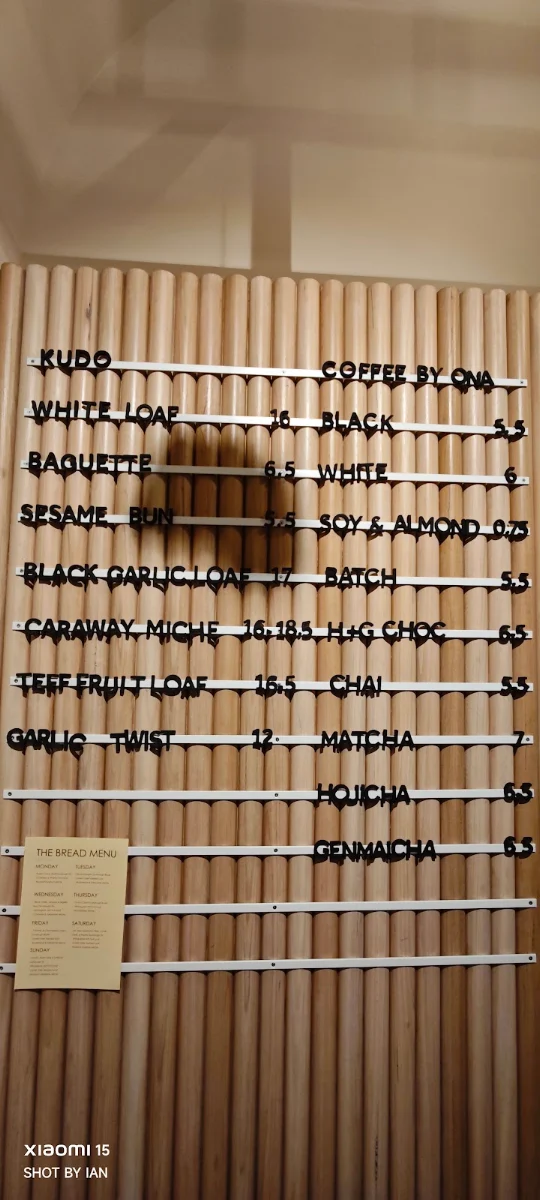 KUDO
WHITE LOAF 16
BAGUETTE 6.5
SESAME BUN 5.5
BLACK GARLIC LOAF 17
CARAWAY MICHE 16-18.5
TEFF FRUIT LOAF 16.5
GARLIC TWIST 12
COFFEE BY ONA
BLACK 5.5
WHITE 6
SOY & ALMOND 0.75
BATCH 5.5
H+G CHOC 6.5
CHAI 5.5
MATCHA 7
HOJICHA 6.5
GENMAICHA 6.5
THE BREAD MENU
MONDAY TUESDAY
WEDNESDAY THURSDAY
FRIDAY SATURDAY
SUNDAY
xiaomi 15
SHOT BY IAN